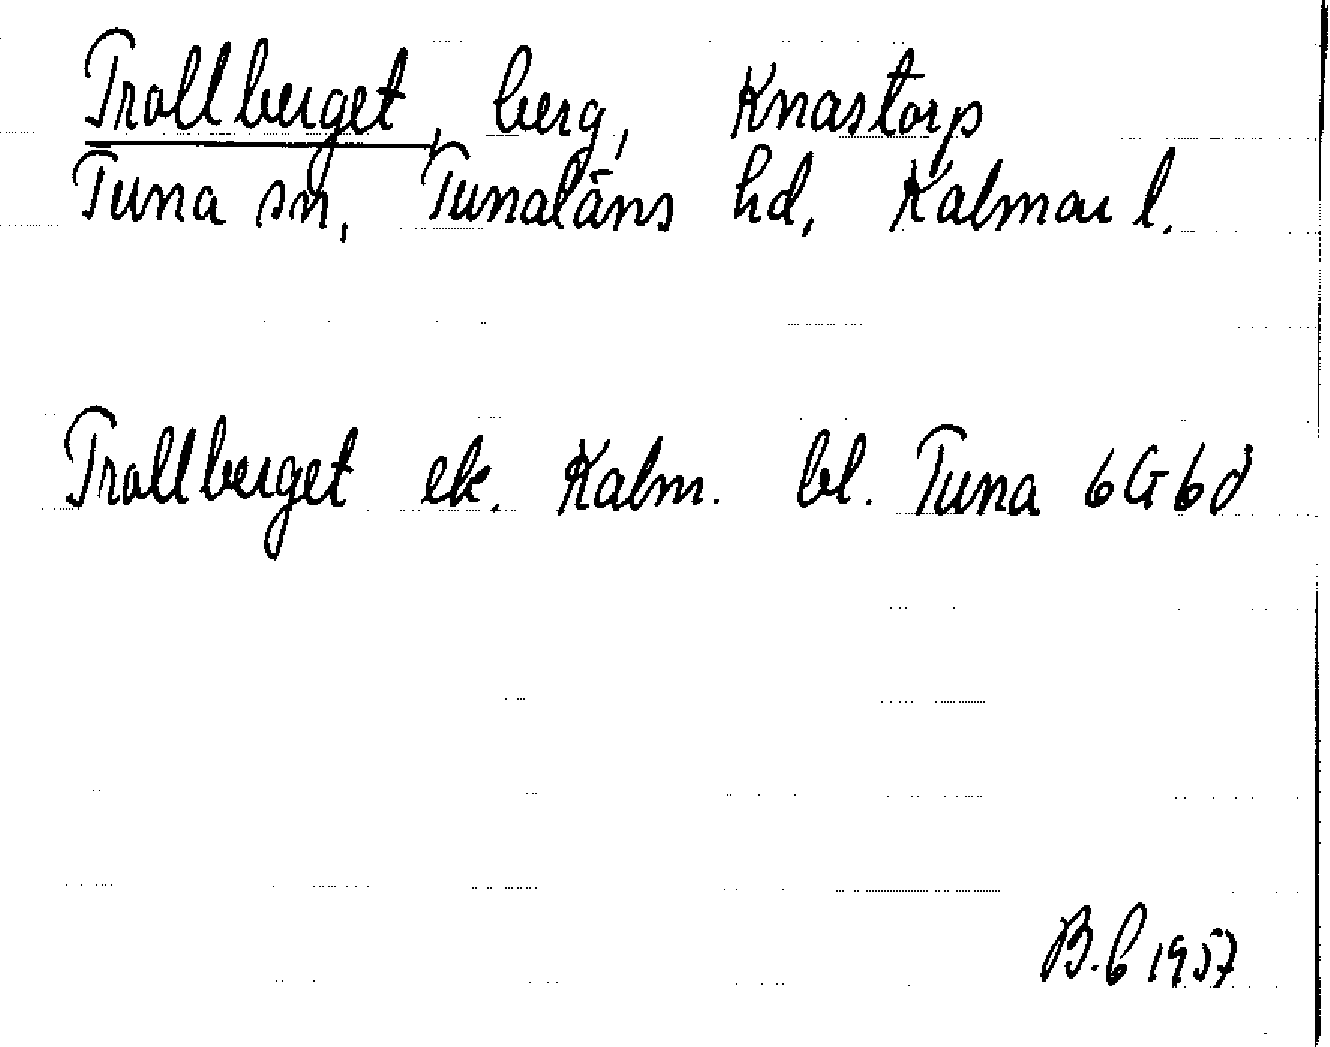 Trollberget, berg, Knastorp
Tuna sn, Tunaläns hd, Kalmar l.
Trollberget ek. Kalm. bl. Tuna 6G6d
B.L 1957